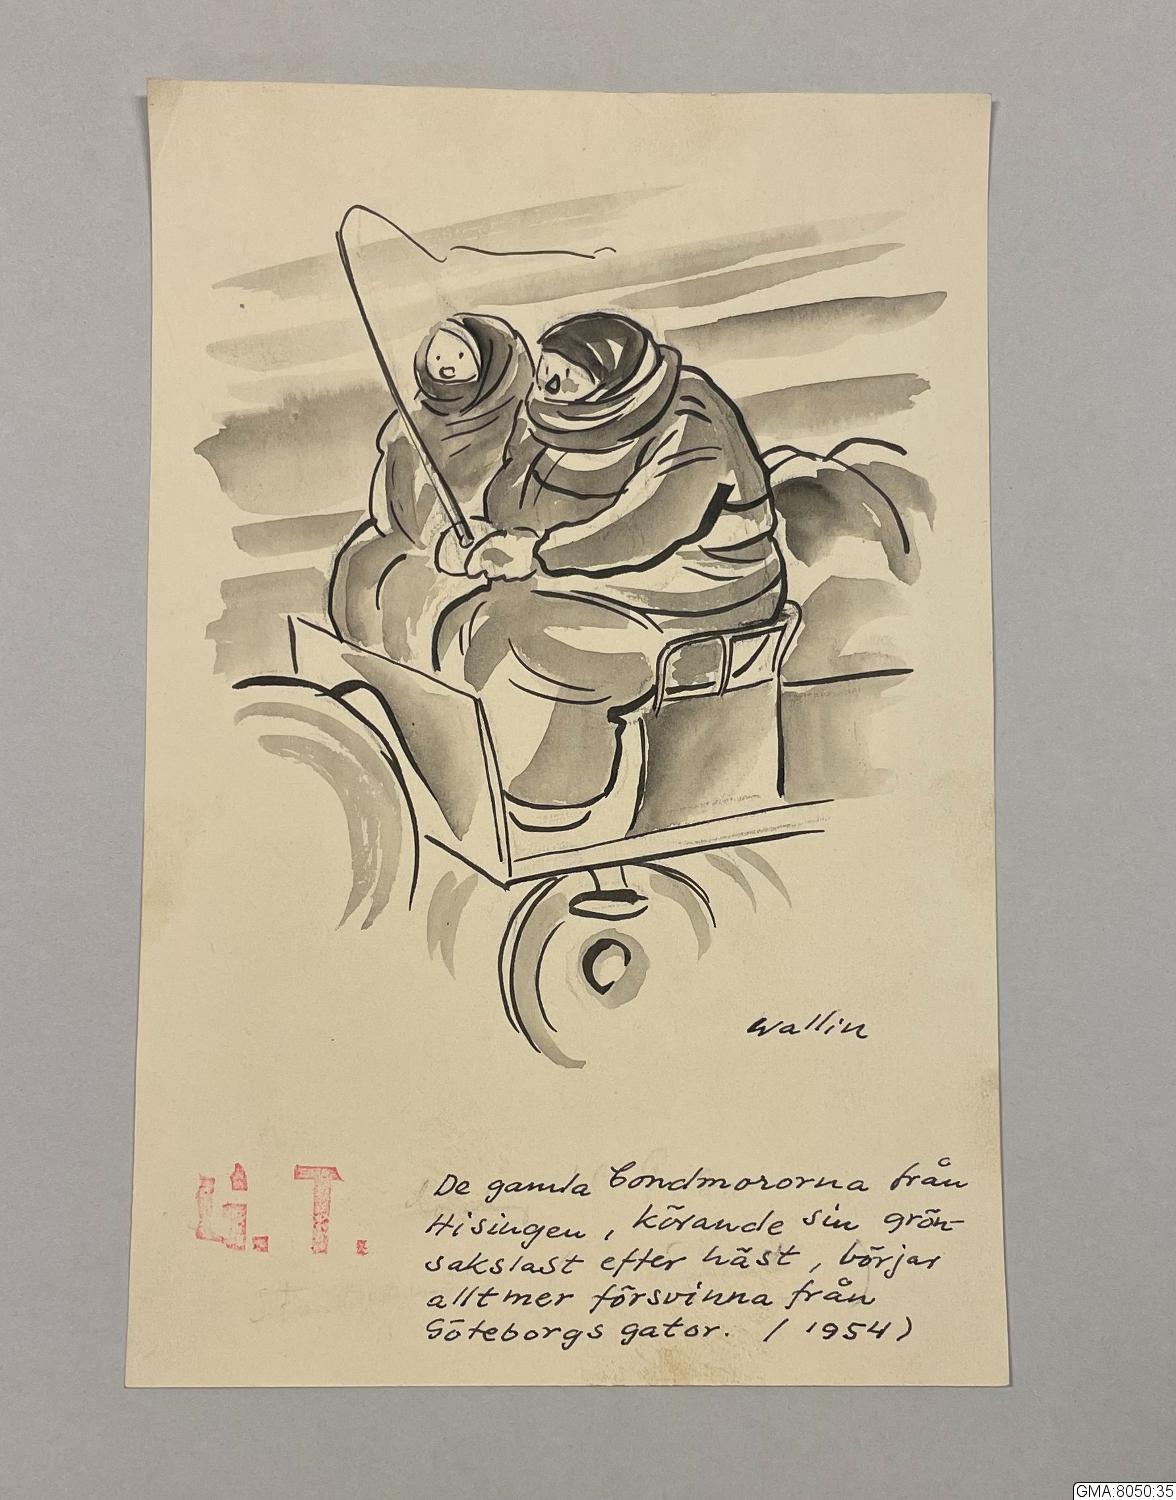 Wallin
G.T.
De gamla bondmororna från
Hisingen, körande sin grön-
sakslast efter häst, börjar
alltmer försvinna från
Göteborgs gator. (1954)
GMA:8050:35